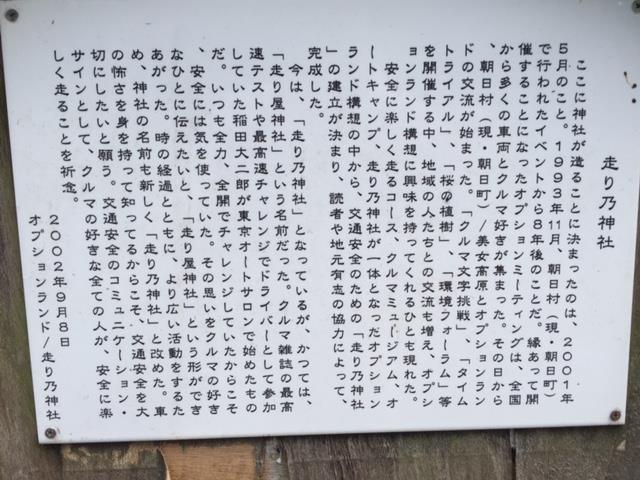 走り乃神社
ここに神社が造ることに決まったのは、2001年
5月のこと。1993年11月、朝日村(現・朝日町)
で行われたイベントから8年後のことだ。縁あって開
催することになったオプションミーティングは、全国
から多くの車両とクルマ好きが集まった。その日から
、朝日村(現・朝日町)/美女高原とオプションラン
ドの交流が始まった。「クルマ文字挑戦」、「タイム
トライアル」、「桜の植樹」、「環境フォーラム」等
を開催する中、地域の人たちとの交流も増え、オプシ
ョンランド構想に興味を持ってくれるひとも現れた。
安全に楽しく走るコース、クルマミュージアム、オ
ートキャンプ、走り乃神社が一体となったオプション
ランド構想の中から、交通安全のための「走り乃神社
」の建立が決まり、読者や地元有志の協力によって、
完成した。
今は、「走り乃神社」となっているが、かつては、
「走り屋神社」という名前だった。クルマ雑誌の最高
速テストや最高速チャレンジでドライバーとして参加
していた稲田大二郎が東京オートサロンで始めたもの
だ。いつも全力、全開でチャレンジしていたからこそ
、安全には気を使っていた。その思いをクルマの好き
なひとに伝えたいと、「走り屋神社」という形ができ
あがった。時の経過とともに、より広い活動をするた
め、神社の名前も新しく「走り乃神社」と改めた。車
の怖さを身を持って知ってるからこそ、交通安全を大
切にしたいと願う。交通安全のコミュニケーション・
サインとして、クルマの好きな全ての人が、安全に楽
しく走ることを祈念。
2002年9月8日
オプションランド/走り乃神社